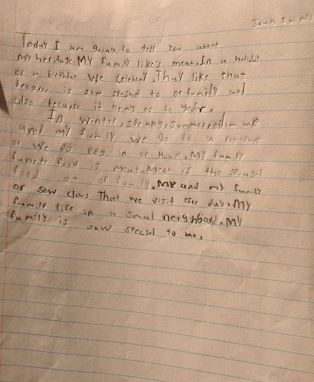 Today I am going to tell you about
my heritage. My family like's meat. In a holiday
or a birthday we celebrat. Thay like that
becaus is sow speshel to or family and
also because it bring os to geder.
In, Winter, spring, summer, me
and my family we go to a
or we do BBQ in or house. My family
favorit food is meat. Meat is the speasel
food on of family. Me and my family
or sow clos That we visit eche day. My
family live in a smal neighborhood. My
family is sow speasel to me.